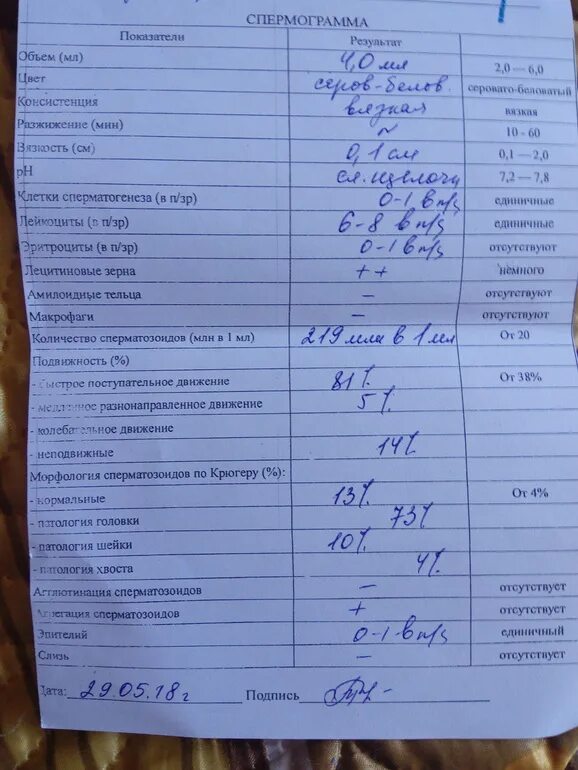 СПЕРМОГРАММА
Показатели Результат
Объем (мл) 4,0 мл 2,0 — 6,0
Цвет серов-белов. серовато-беловатый
Консистенция вязкая вязкая
Разжижение (мин) ~ 10 - 60
Вязкость (см) 0,1 см 0,1 – 2,0
pH сл. щелочн 7,2 – 7,8
Клетки сперматогенеза (в п/зр) 0-1 в п/з единичные
Лейкоциты (в п/зр) 6-8 в п/з единичные
Эритроциты (в п/зр) 0-1 в п/з отсутствуют
Лецитиновые зерна ++ немного
Амилоидные тельца – отсутствуют
Макрофаги – отсутствуют
Количество сперматозоидов (млн в 1 мл) 219 млн в 1 мл От 20
Подвижность (%)
- быстрое поступательное движение 81% От 38%
- медленное разнонаправленное движение 5%
- колебательное движение
- неподвижные 14%
Морфология сперматозоидов по Крюгеру (%):
- нормальные 13% От 4%
- патология головки 73%
- патология шейки 10%
- патология хвоста 4%
Агглютинация сперматозоидов – отсутствует
Агрегация сперматозоидов + отсутствует
Эпителий 0-1 в п/з единичный
Слизь – отсутствует
Дата: 29.05.18 г Подпись